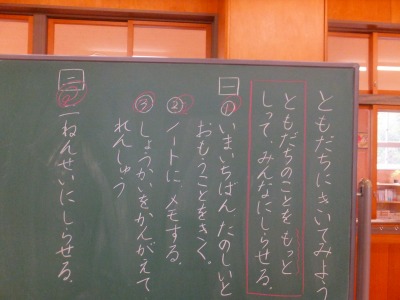 ともだちにきいてみよう
ともだちのことをもっと
しって、みんなにしらせる。
一 ①いまいちばんたのしいと
おもうことをきく。
②ノートにメモする。
③しょうかいをかんがえて
れんしゅう
二 一ねんせいにしらせる。